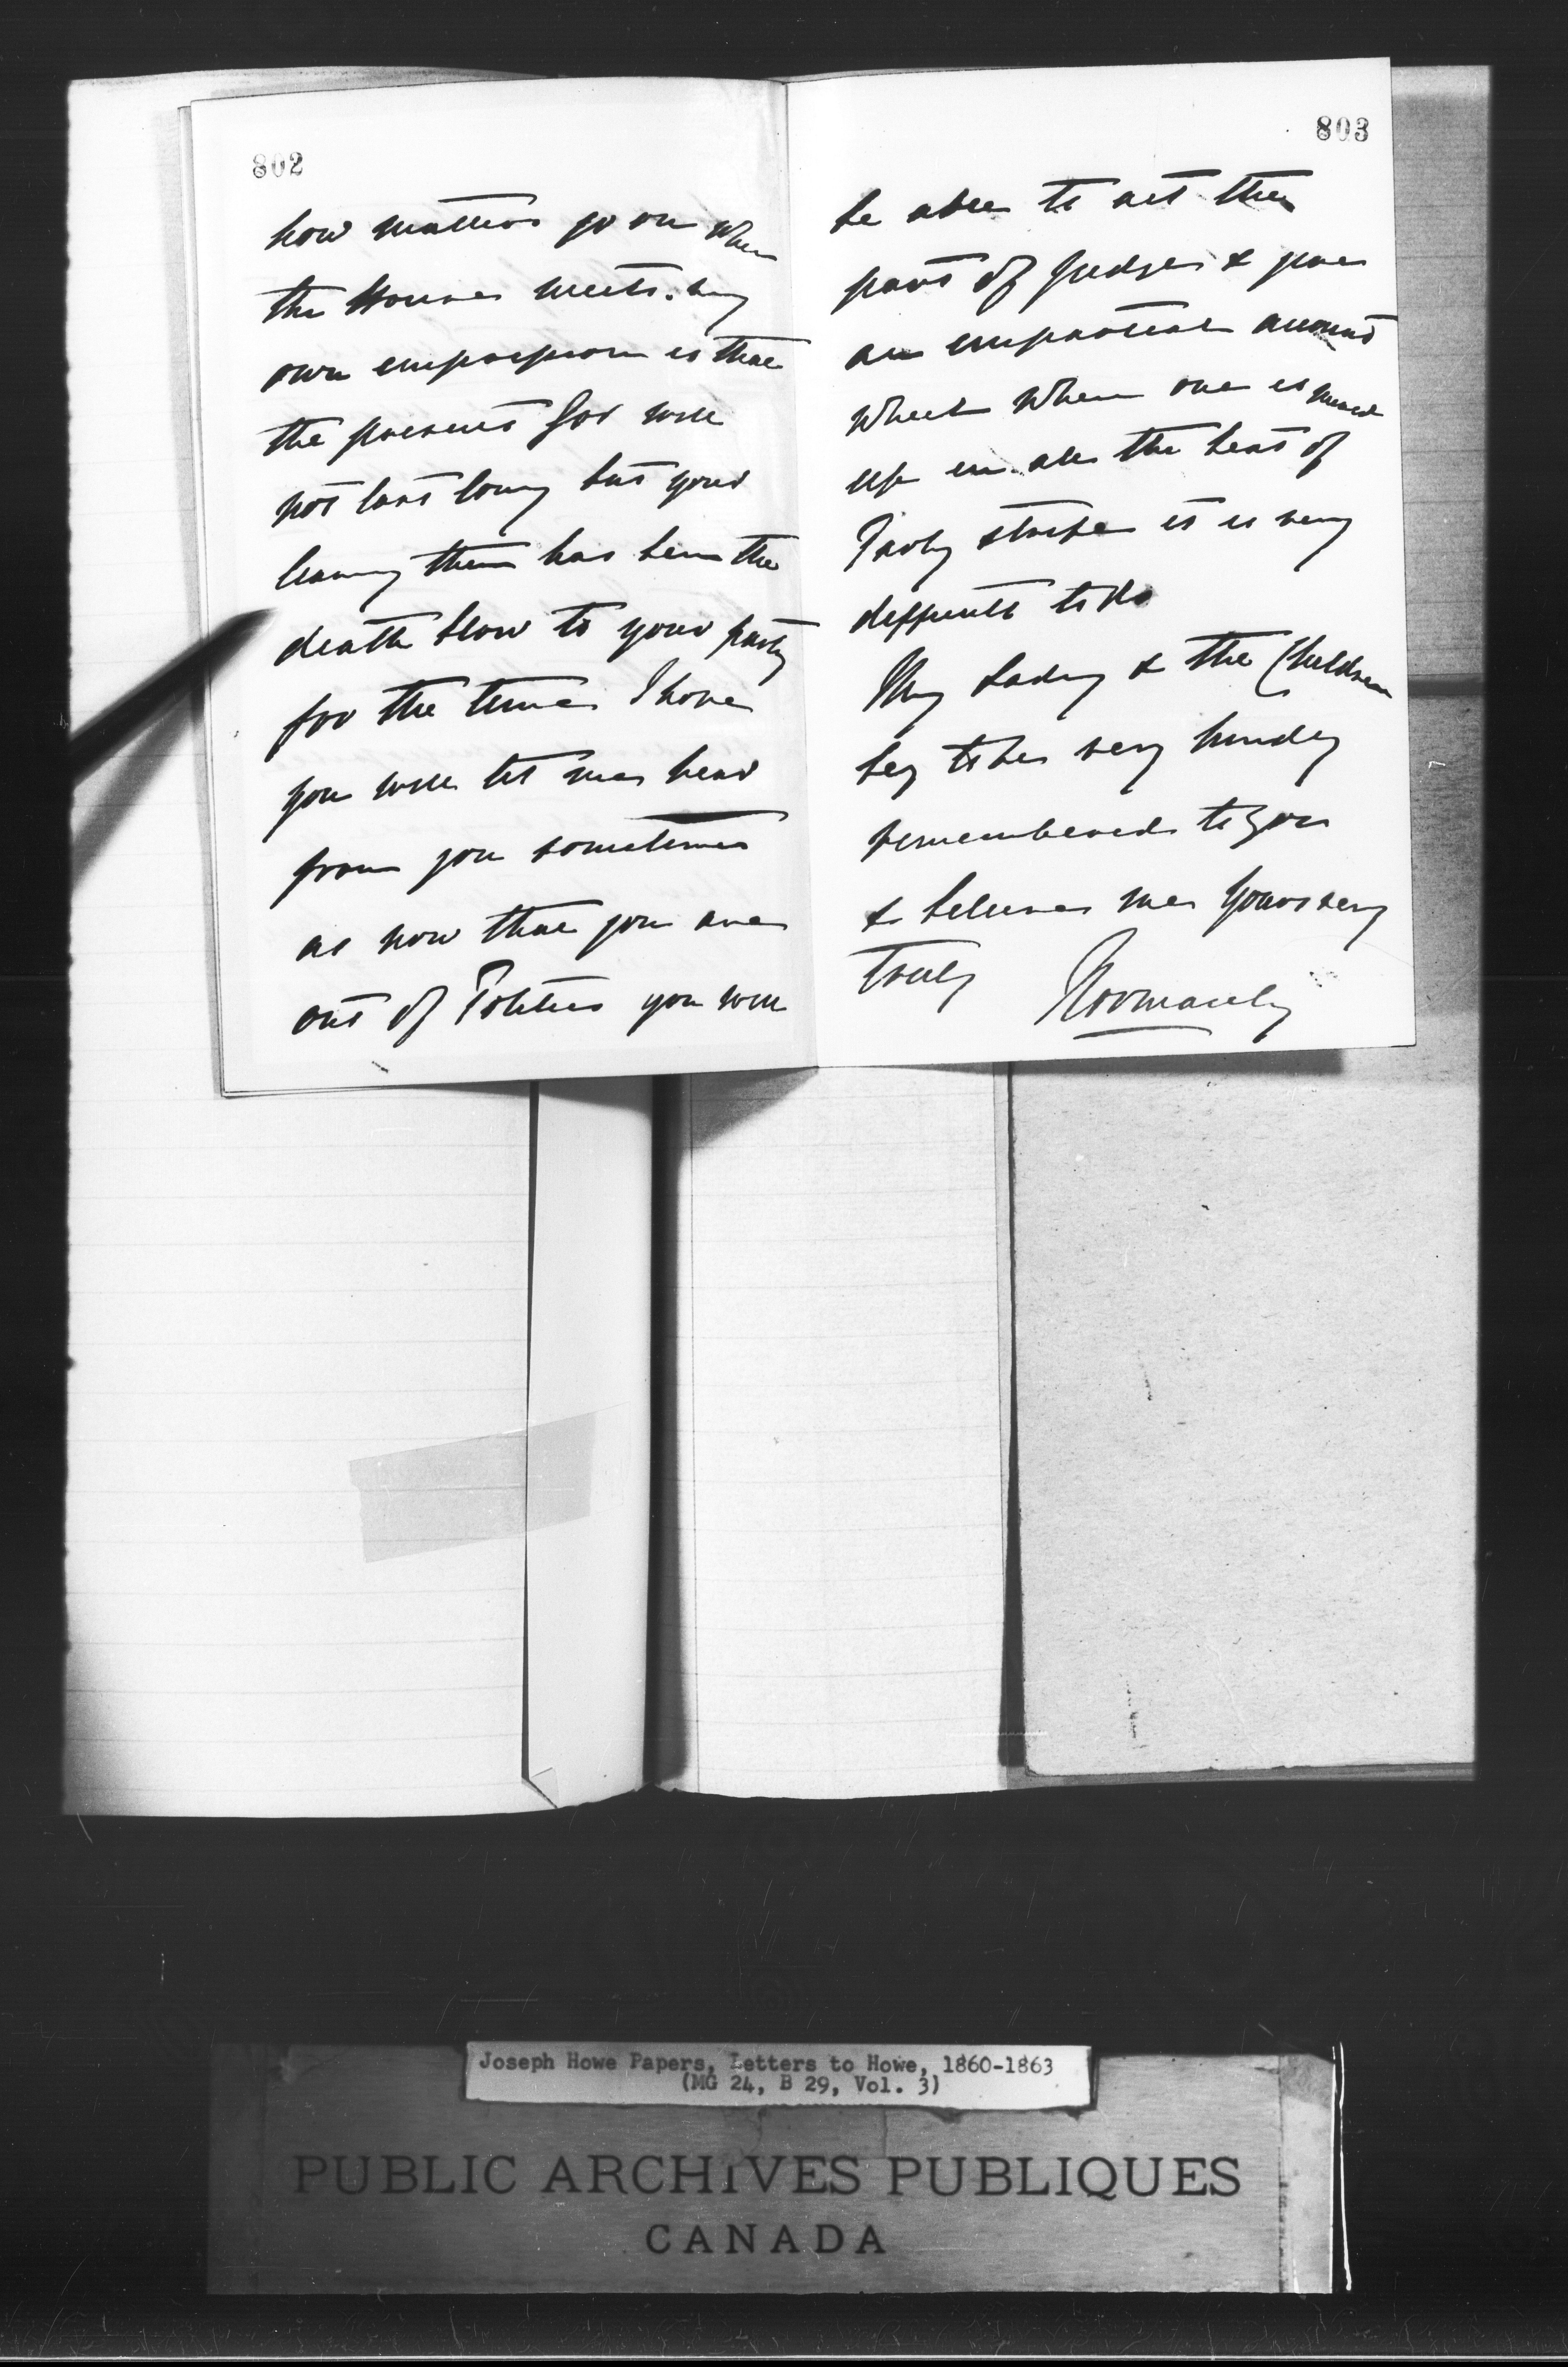 802
how matters go on when
the House meets. my
own impression is that
the present Gov will
not last long but your
leaving them has been the
death blow to your party
for the time I hope
you will let me hear
from you sometimes
as now that you are
out of Politics you will
803
be able to act the
part of Judge & give
an impartial account
which when one is mixed
up in all the heat of
Party strife it is very
difficult to do
My Lady & the Children
beg to be very kindly
remembered to you
& believe me yours very
truly Normanby
Joseph Howe Papers, Letters to Howe, 1860-1863
(MG 24, B 29, Vol. 3)
PUBLIC ARCHIVES PUBLIQUES
CANADA